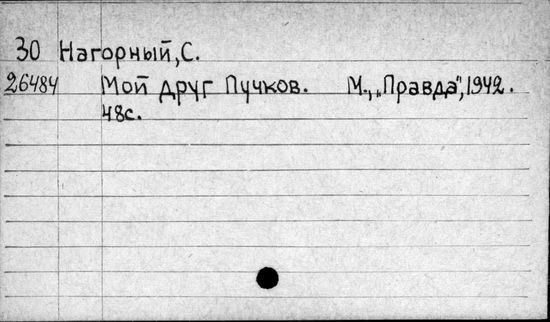 30 Нагорный, С.
26484 Мой друг Пучков. М., „Правда", 1942.
48с.